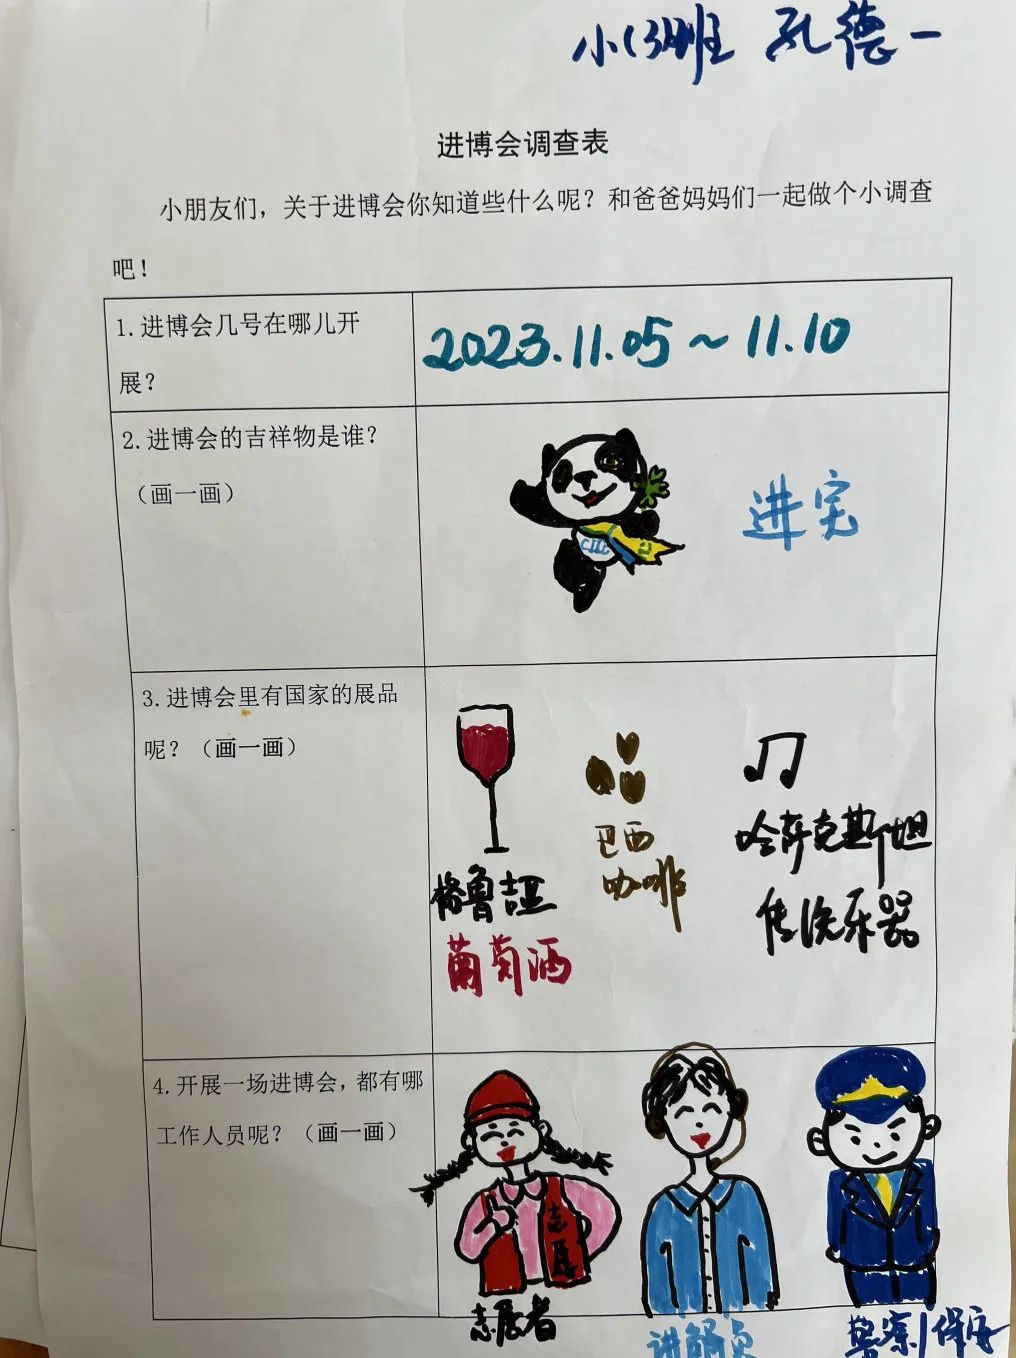 小(3)班 孔德一
进博会调查表
小朋友们，关于进博会你知道些什么呢？和爸爸妈妈们一起做个小调查
吧！
1.进博会几号在哪儿开
展？
2023.11.05～11.10
2.进博会的吉祥物是谁？
（画一画）
进宝
3.进博会里有国家的展品
呢？（画一画）
格鲁吉亚
葡萄酒
巴西
咖啡
哈萨克斯坦
传统乐器
4.开展一场进博会，都有哪
工作人员呢？（画一画）
志愿
志愿者
讲解员
警察/保安